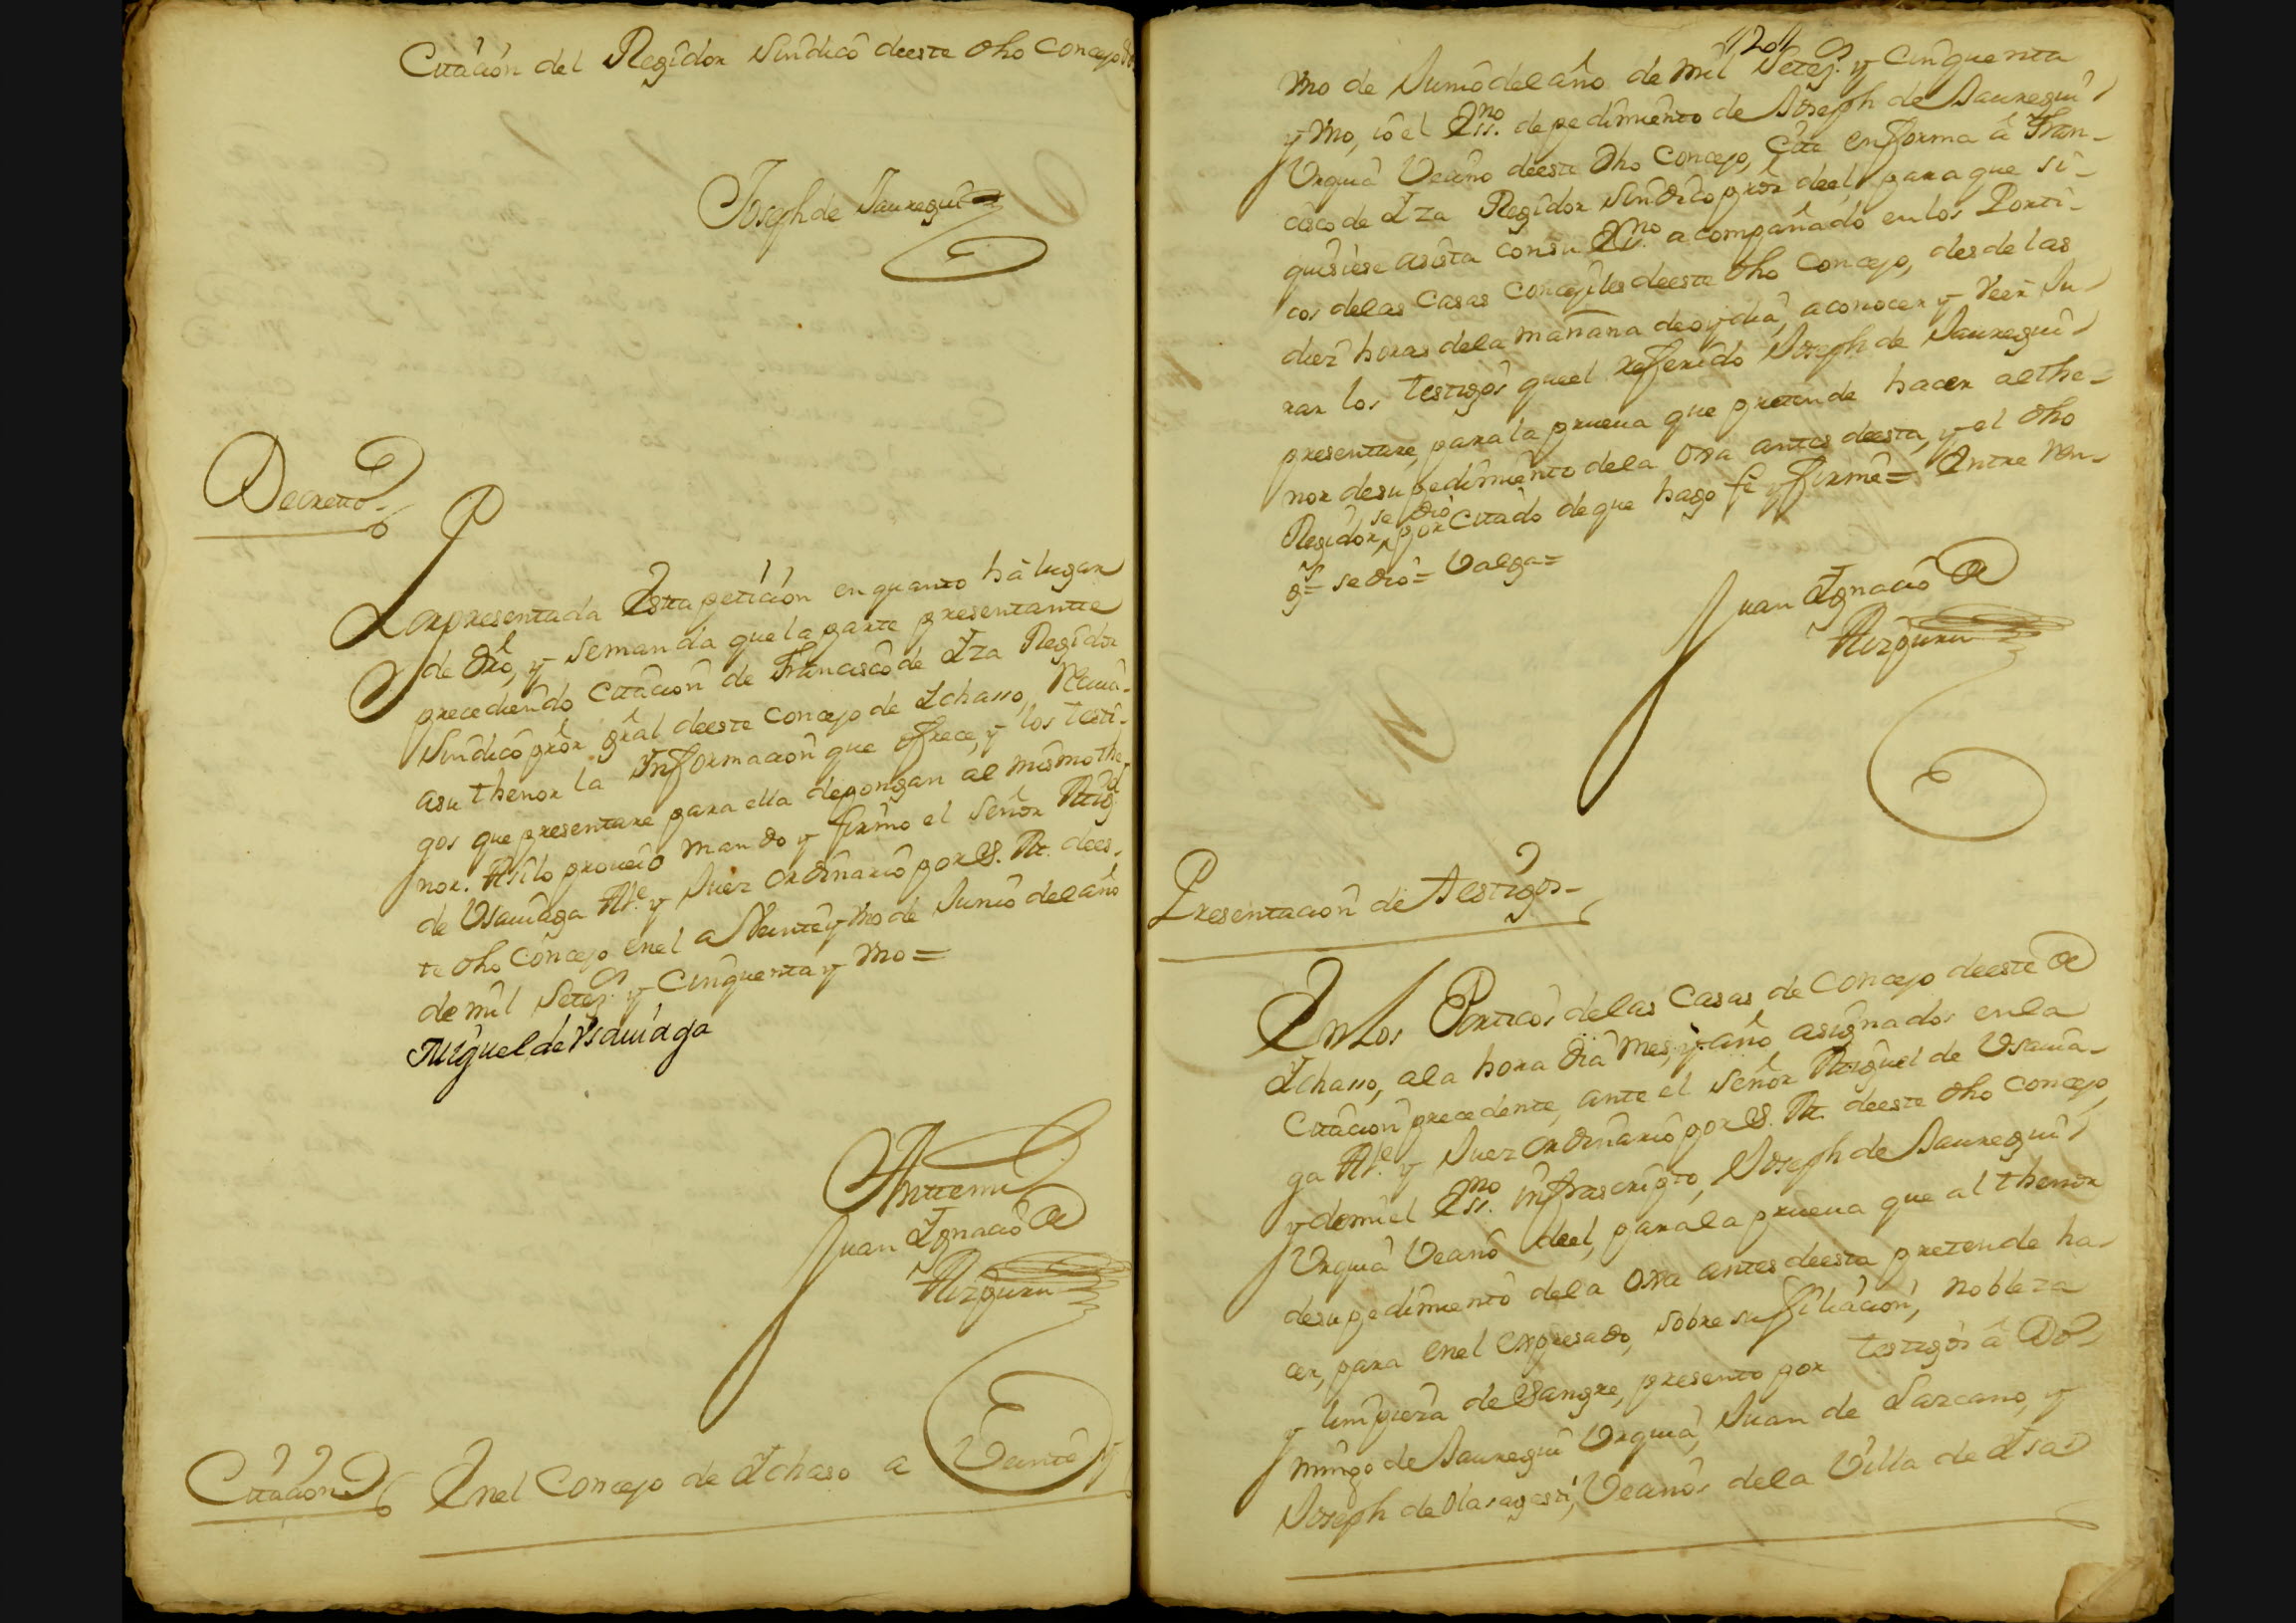 Citación del Regidor Sindico deeste dho Concejo
Joseph de Jauregui
Decretto
Porpresentada Estta petición enquanto há lugar
de dró, y semanda que la parte presentantte
precediendo Cittación de Francisco de Iza Regidor
Sindico prór grál deeste Concejo de Ichasso, Reciva
asu thenor la Informacion que ofrece, y los testi-
gos que presentare para ella depongan al mismo the-
nor. Asilo proveió mando y firmó el Señor Mig.l
de Usauiaga Alc.e y Juez ordinario por S. M. dees-
te dho Concejo enel a Veinte y Vno de Junio del año
de mil Setez.s y Cinquenta y Vno =
Miguel de Vsauiaga
Anttemi
Juan Ignacio de
Aizpuru
Cittación Enel Concejo de Ichaso a Veinte y
120
Vno de Junio del año de mil Setez.s y Cinquenta
y Vno, io el Ess.no de pedimiento de Joseph de Jauregui
Urquia Vecino deeste dho Concejo, Cite enforma â Fran-
cisco de Iza Regidor Sindico prór deel, para que si
quisiese asista consu Ess.no acompañado enlos Porti-
cos delas Casas Concejiles deeste dho Concejo, desde las
diez horas dela mañana deoydia, aconocer y Veer Ju-
rar los testigos queel referido Joseph de Jauregui
presentare, para la prueua que pretende hacer althe-
nor desu pedimiento dela ôra antes deesta, y el dho
Regidor, se dió por Cittado deque hago fé y firmé = Entre Ren-
g.s = se dió = Valga =
Juan Ignacio de
Aizpuru
Presentación de Testigos
Enlos Porticos delas Casas de Concejo deeste de
Ichasso, ala hora dia mes, y año asignados enla
Cittación precedente, ante el Señor Miguel de Usauia-
ga Alc.e y Juez ordinario por S. M. deeste dho Concejo,
y demiel Ess.no infrascripto, Joseph de Jauregui
Urquia Vecino deel, parala prueua que al thenor
desu pedimiento dela ôra antes deesta pretende ha-
cer, para enel expresado, sobre su filiación, nobleza
y limpieza de Sangre, presento por testigos â Do-
mingo de Jauregui Urquia, Juan de Lazcano, y
Joseph de Olasagasti, Vecinos dela Villa de Isas